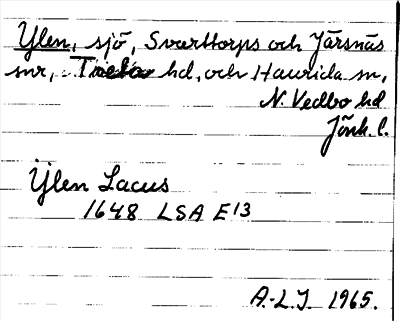 Ylen, sjö, Svarttorps och Järsnäs
snr, Tveta hd, och Haurida sn,
N. Vedbo hd
Jönk. l.
Ÿlen Lacus
1648 LSA E 13
A.-L.J. 1965.